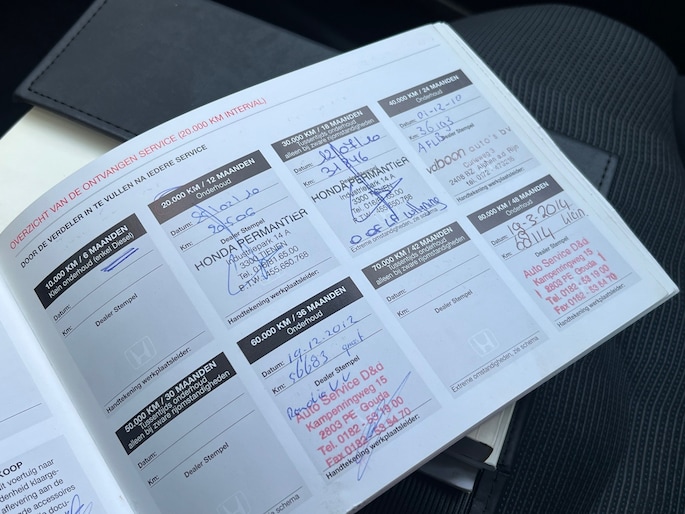 OVERZICHT VAN DE ONTVANGEN SERVICE (20.000 KM INTERVAL)
DOOR DE VERDELER IN TE VULLEN NA IEDERE SERVICE
10.000 KM / 6 MAANDEN
Klein onderhoud (enkel Diesel)
Datum:
Km:
Dealer Stempel
Handtekening werkplaatsleider:
20.000 KM / 12 MAANDEN
Onderhoud
Datum:
Km:
Dealer Stempel
HONDA PERMANTIER
Industriepark 14 A
3300 TIENEN
Handtekening werkplaatsleider:
30.000 KM / 18 MAANDEN
Tussentijds onderhoud
alleen bij zware rijomstandigheden
Datum:
Km:
HONDA PERMANTIER
Industriepark 14 A
Extreme omstandigheden, zie schema
40.000 KM / 24 MAANDEN
Onderhoud
Datum: 01-12-10
Km:
Dealer Stempel
vaboon auto's BV
Handtekening werkplaatsleider:
50.000 KM / 30 MAANDEN
Tussentijds onderhoud
alleen bij zware rijomstandigheden
Datum:
Km:
Dealer Stempel
60.000 KM / 36 MAANDEN
Onderhoud
Datum: 19-12-2012
Km: 56683
Dealer Stempel
Auto Service D&d
Kampenringweg 15
2803 PE Gouda
Tel. 0182 - 53 19 00
Fax 0182 - 53 54 70
Handtekening werkplaatsleider:
70.000 KM / 42 MAANDEN
Tussentijds onderhoud
alleen bij zware rijomstandigheden
Datum:
Km:
Dealer Stempel
Extreme omstandigheden, zie schema
80.000 KM / 48 MAANDEN
Onderhoud
Datum: 19-3-2014
Km:
Dealer Stempel
Auto Service D&d
Kampenringweg 15
2803 PE Gouda
Tel. 0182 - 53 19 00
Fax 0182 - 53 54 70
Handtekening werkplaatsleider:
KOOP
it voertuig naar
denheid klaarge-
aflevering aan de